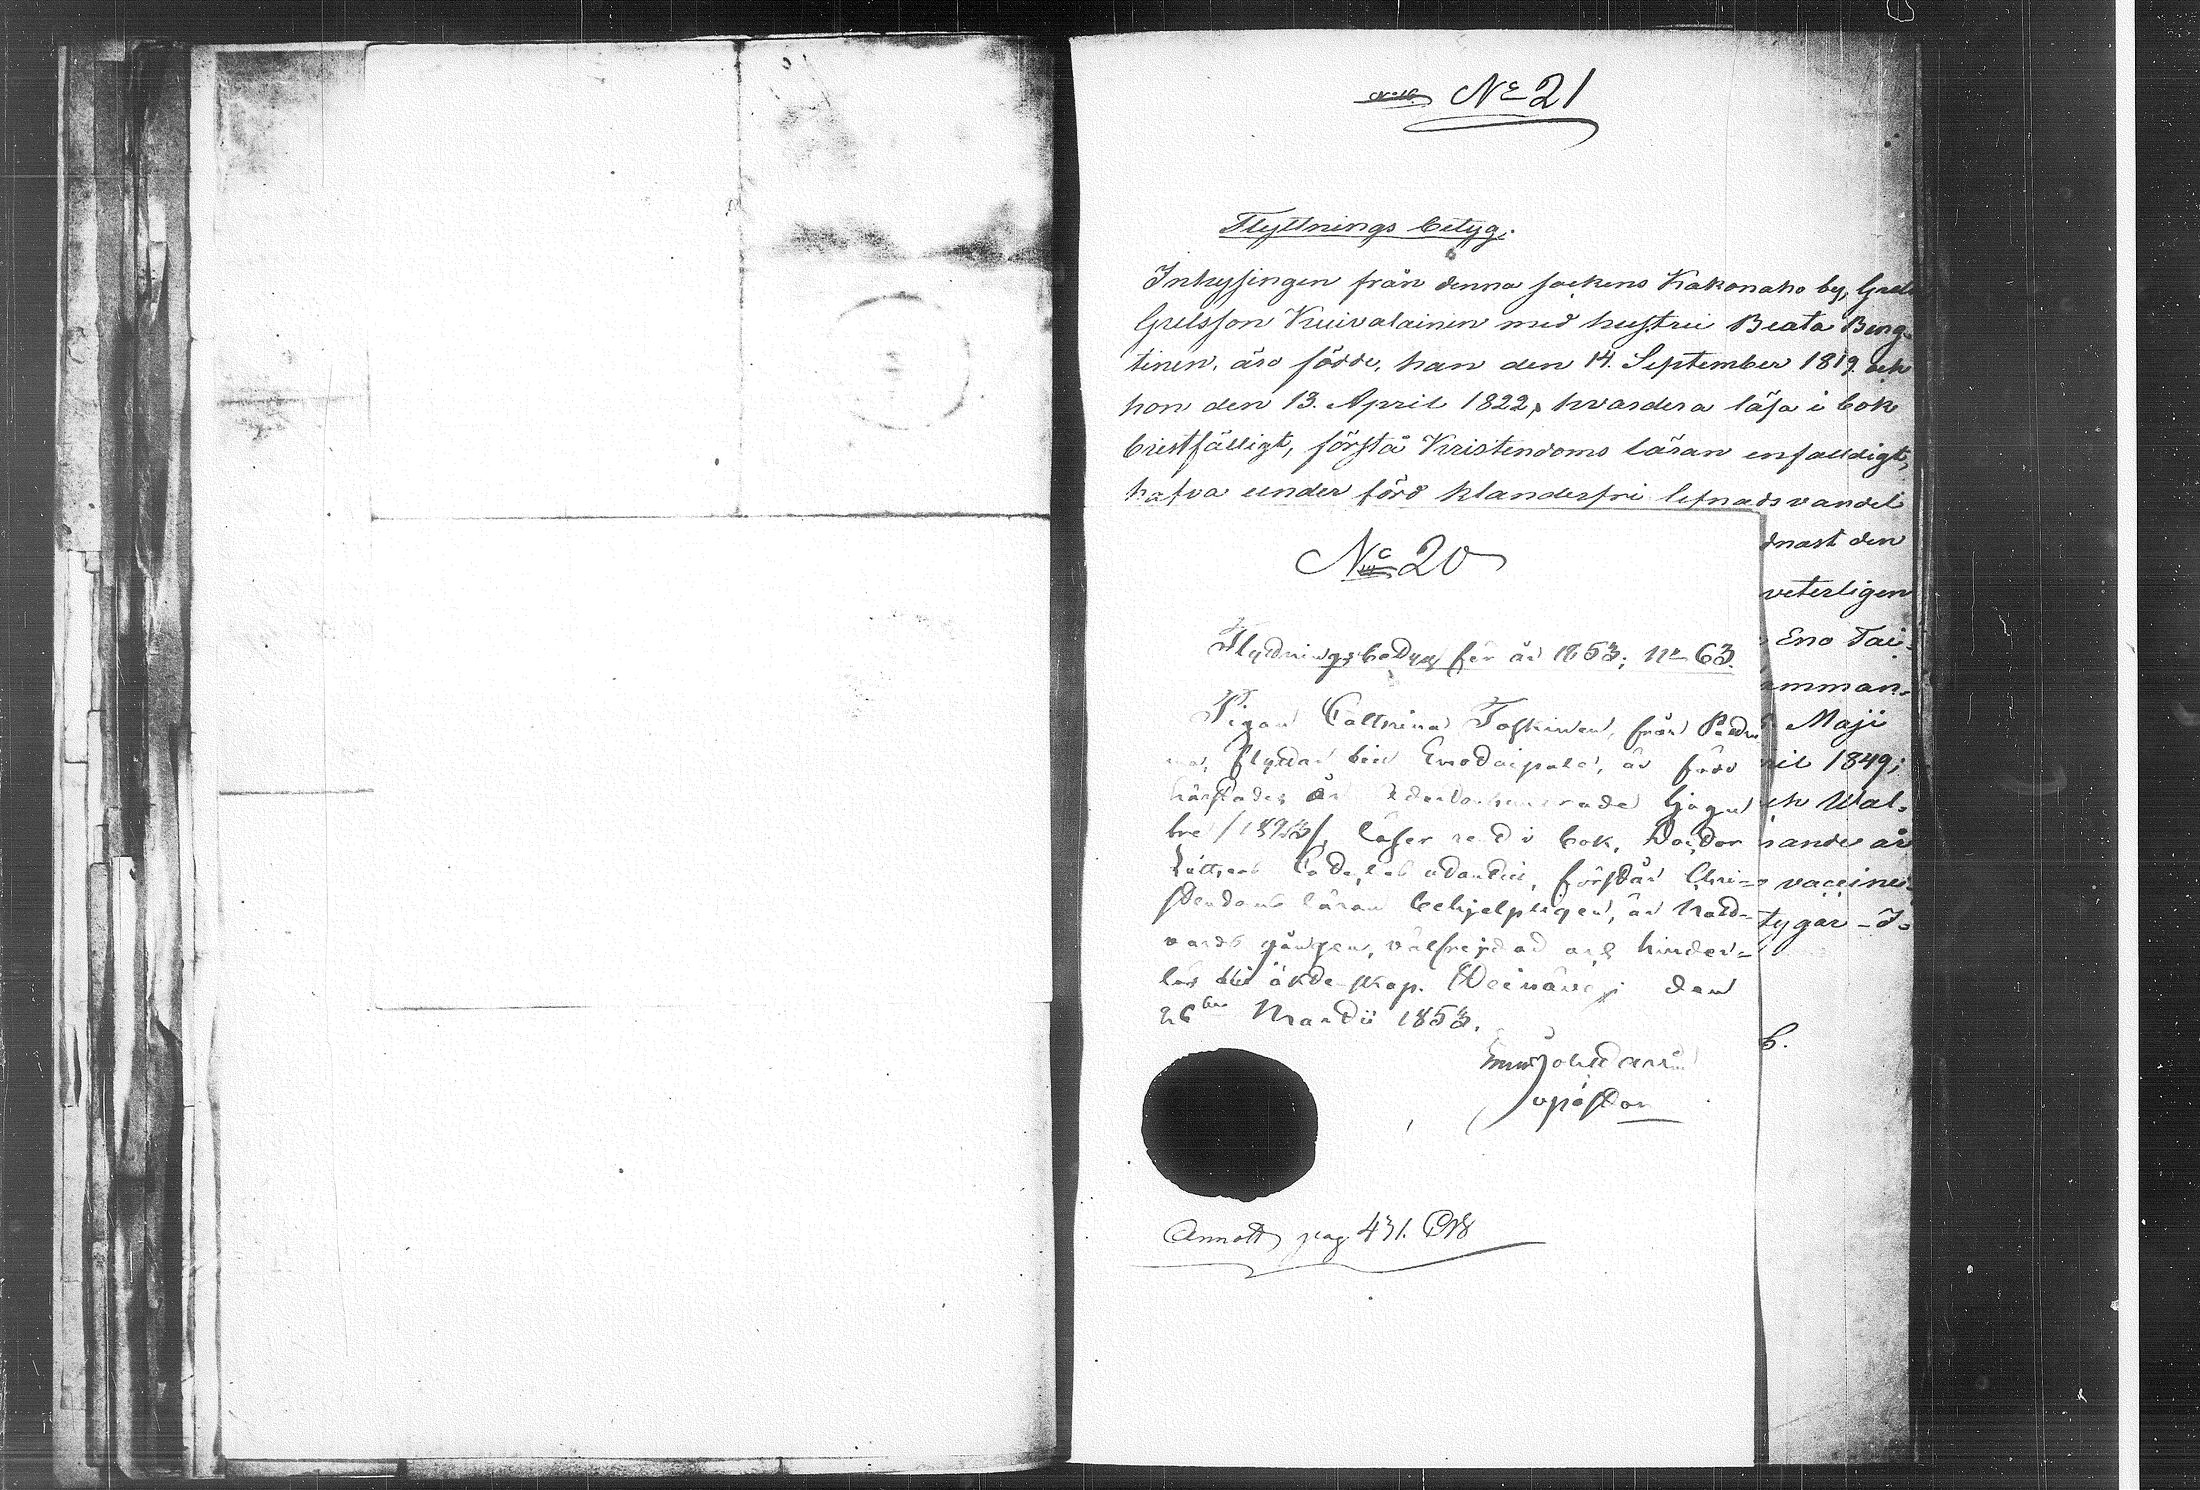 No 21
Flyttnings betyg.
Inhysingen från denna sockens Kakonaho by, Grels
Grelsson Kuivalainen med hustru Beata Beng-
tinen, äro födde, han den 14. September 1819 och
hon den 13. April 1822, hvardera läsa i bok
bristfälligt, förstå Kristendoms läran enfaldigt,
hafva under förd klanderfri lefnadsvandel
dnast den
veterligen
Eno Tai-
amman-
Maji
ril 1849;
ch Wal-
hande är
vaccine-
tygar - I-
b.
No 20
Flyttningsbetyg för år 1853; No 63.
Pigan Cathrina Toskinen, från
flyttar till Enotaipale, är född
härstädes år adertonhundrade tjugu
tre /1823/, läser i bok,
Luthers förstår Chri-
stendoms läran behjelpligen, är natt-
vards gången, välfrejdad och hinder-
lös till äkta skap. den
26ten Martii 1853.
Annott pag 431.